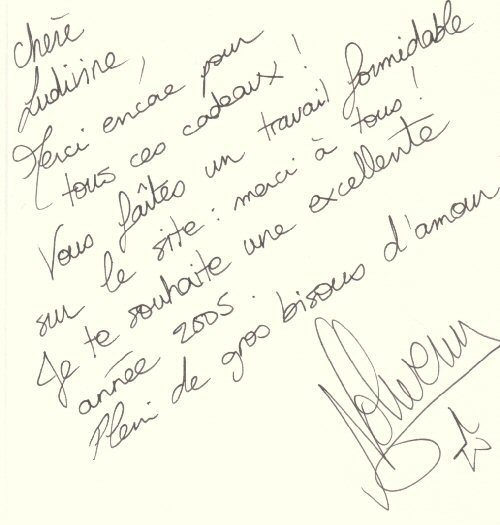 Chère
Ludivine,
Merci encore pour
tous ces cadeaux !
Vous faîtes un travail formidable
sur le site : merci à tous !
Je te souhaite une excellente
année 2005.
Plein de gros bisous d'amour